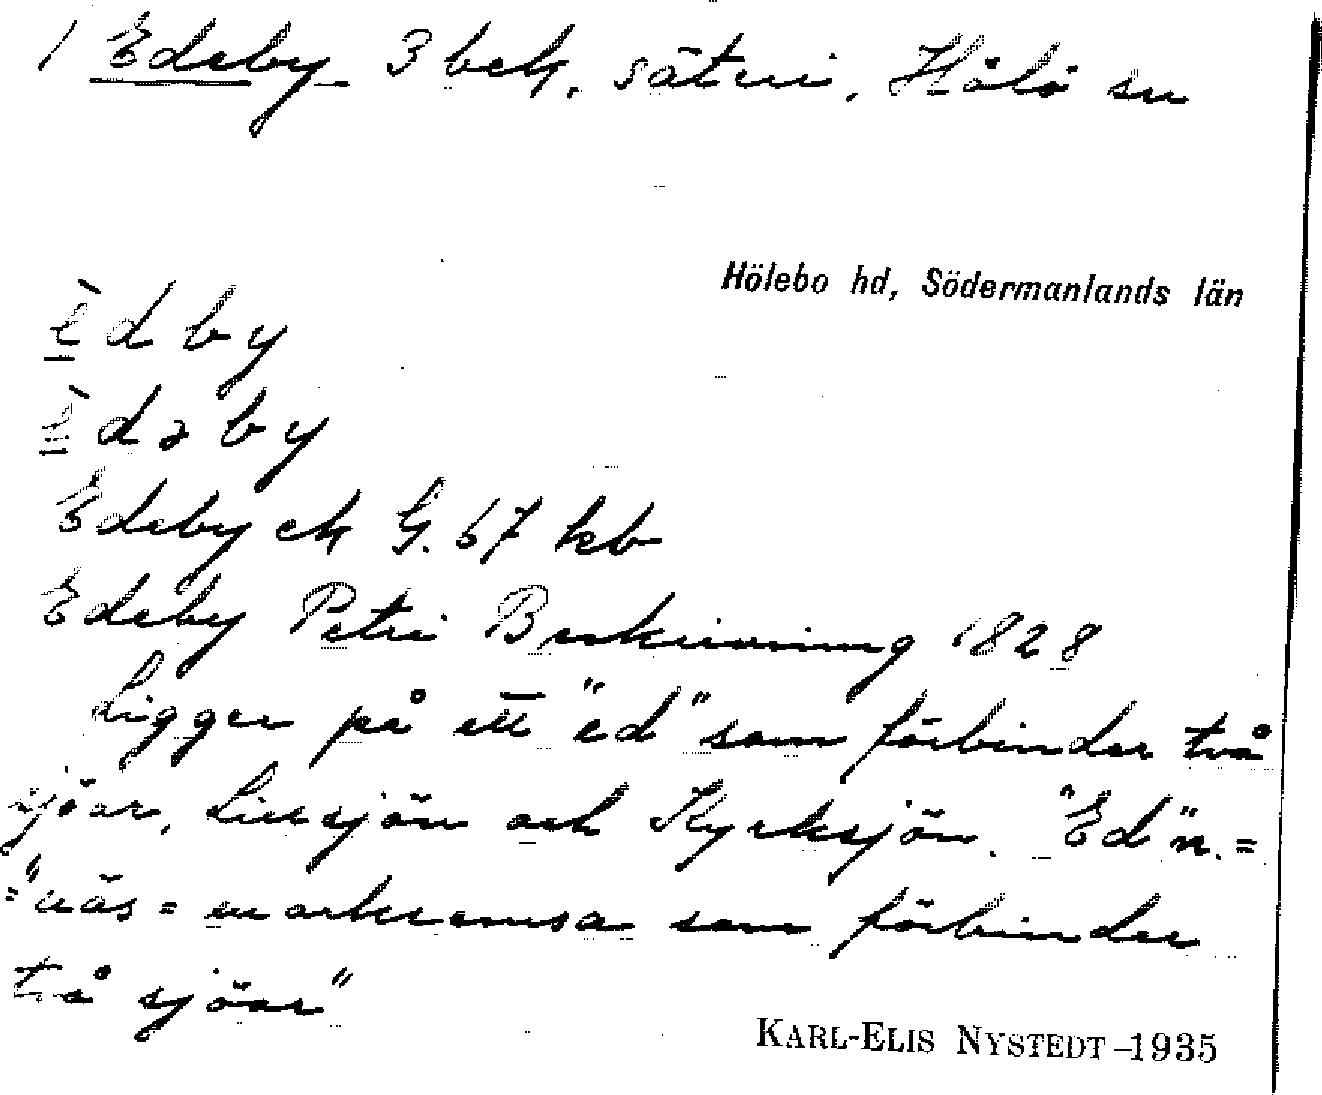 1 Edeby 3 bek, säteri, Hölö sn
Hölebo hd, Södermanlands län
èdby
èdəby
Edeby ek G. 67 kb
Edeby Petri Beskrivning 1828
Ligger på ett "ed" som förbinder två
sjöar, Lillsjön och Kyrksjön. "Ed" n. =
= "näs = markremsa som förbinder
två sjöar"
KARL-ELIS NYSTEDT - 1935